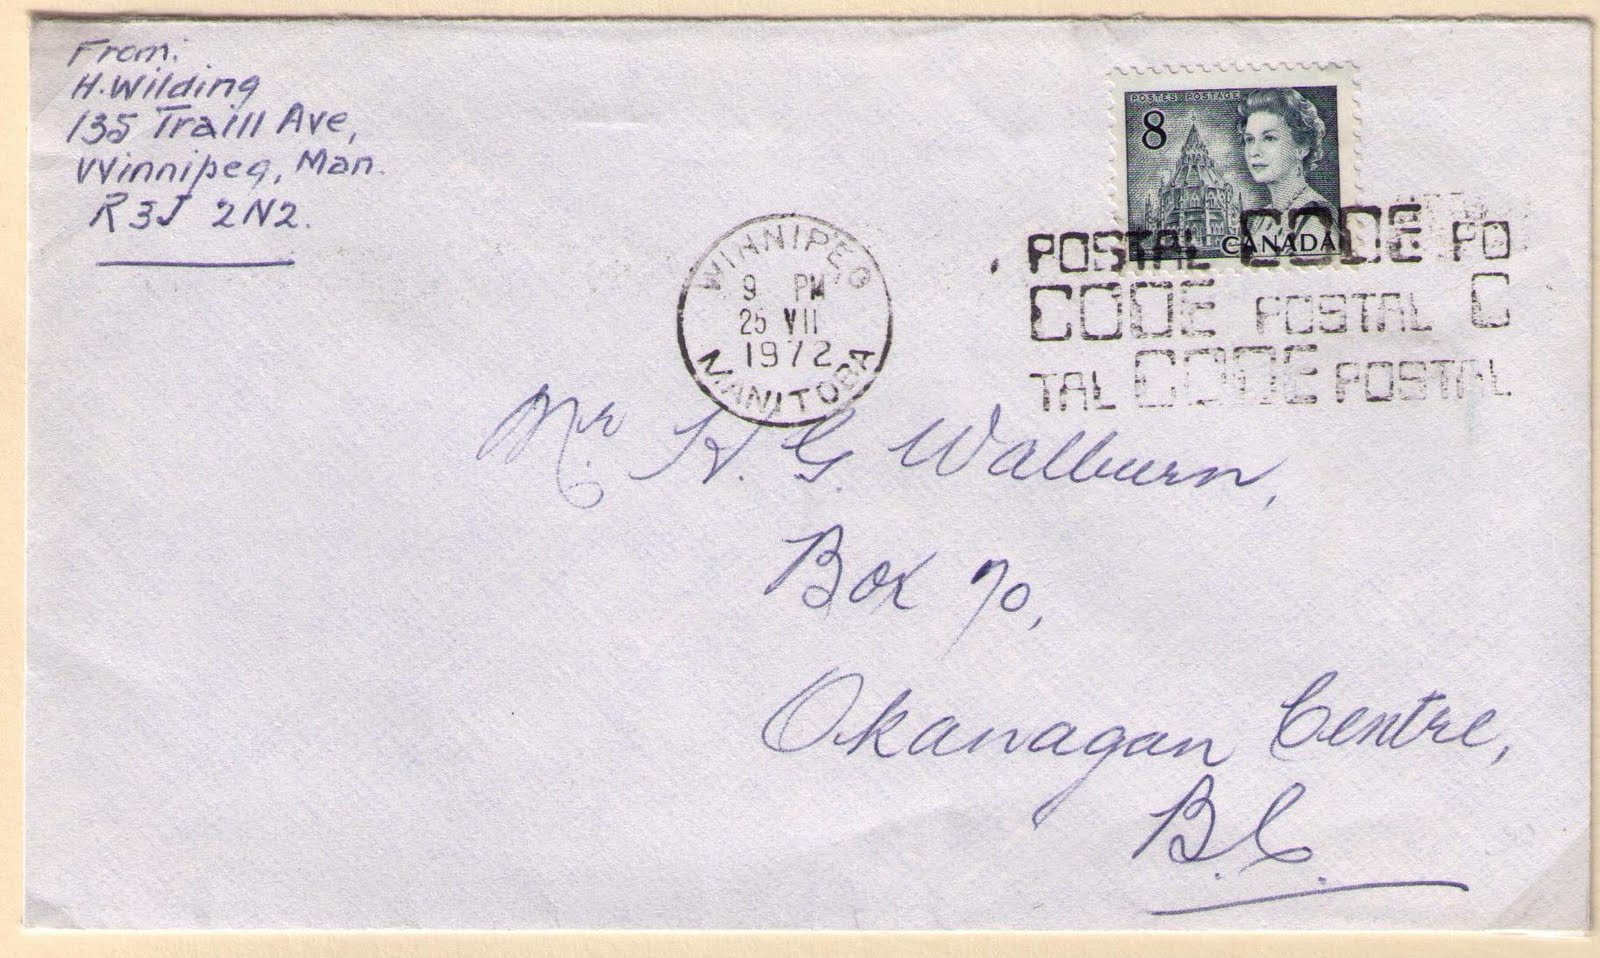 From:
H. Wilding
135 Traill Ave,
Winnipeg, Man.
R3J 2N2.
POSTES POSTAGE
8
CANADA
WINNIPEG
9 PM
25 VII
1972
MANITOBA
POSTAL CODE PO
CODE POSTAL C
TAL CODE POSTAL
Mr. H. G. Walburn,
Box 70,
Okanagan Centre,
B.C.